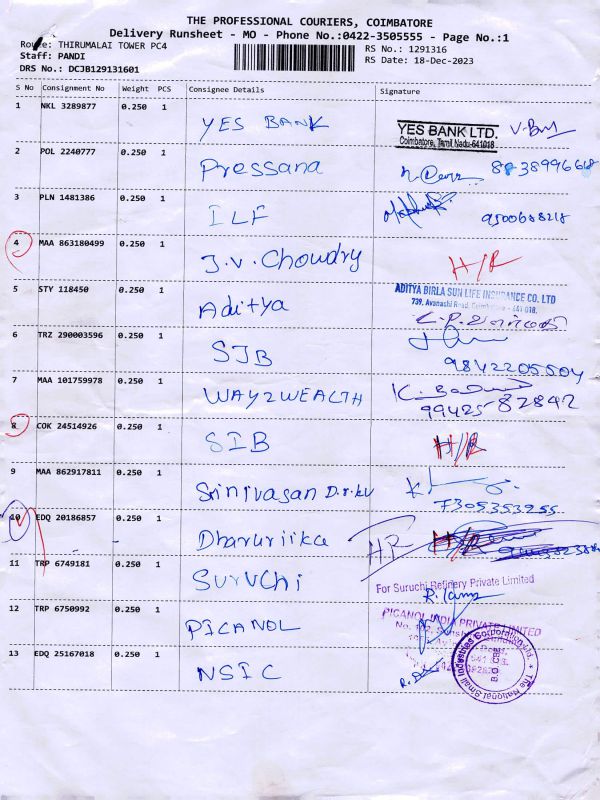 THE PROFESSIONAL COURIERS, COIMBATORE
Delivery Runsheet - MO - Phone No.:0422-3505555 - Page No.:1
Route: THIRUMALAI TOWER PC4 RS No.: 1291316
Staff: PANDI RS Date: 18-Dec-2023
DRS No.: DCJB129131601
S No Consignment No Weight PCS Consignee Details Signature
1 NKL 3289877 0.250 1 YES BANK YES BANK LTD.
Coimbatore, Tamil Nadu-641018
2 POL 2240777 0.250 1 Pressana
3 PLN 1481386 0.250 1 ILF
4 MAA 863180499 0.250 1 J.V. Choudry H/R
5 STY 118450 0.250 1 Aditya ADITYA BIRLA SUN LIFE INSURANCE CO. LTD
739, Avanashi Road, Coimbatore - 641 018.
6 TRZ 290003596 0.250 1 SIB 9842205504
7 MAA 101759978 0.250 1 WAY2WEALTH 99425 82842
8 COK 24514926 0.250 1 SIB H/R
9 MAA 862917811 0.250 1 Srinivasan 7305353255
10 EDQ 20186857 0.250 1 HR H/R
11 TRP 6749181 0.250 1 SURUCHI For Suruchi Refinery Private Limited
12 TRP 6750992 0.250 1 PICANOL PICANOL INDIA PRIVATE LIMITED
13 EDQ 25167018 0.250 1 NSIC The National Small Industries Corporation Ltd.